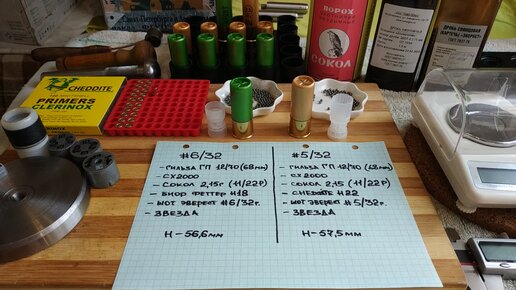 CHEDDITE
PRIMERS
CLERINOX
ПОРОХ
СОКОЛ
#6/32
- ГИЛЬЗА ГП 12/70 (68мм)
- CX2000
- СОКОЛ 2,15г (11/22Р)
- БИОР ФЕТТЕР H18
- ШОТ ЭВЕРЕСТ #6/32г.
- ЗВЕЗДА
H-56,6мм
#5/32
- ГИЛЬЗА ГП 12/70 (68мм)
- CX2000
- СОКОЛ 2,15 (11/22Р)
- CHEDDITE H22
- ШОТ ЭВЕРЕСТ #5/32г.
- ЗВЕЗДА
H-57,5мм